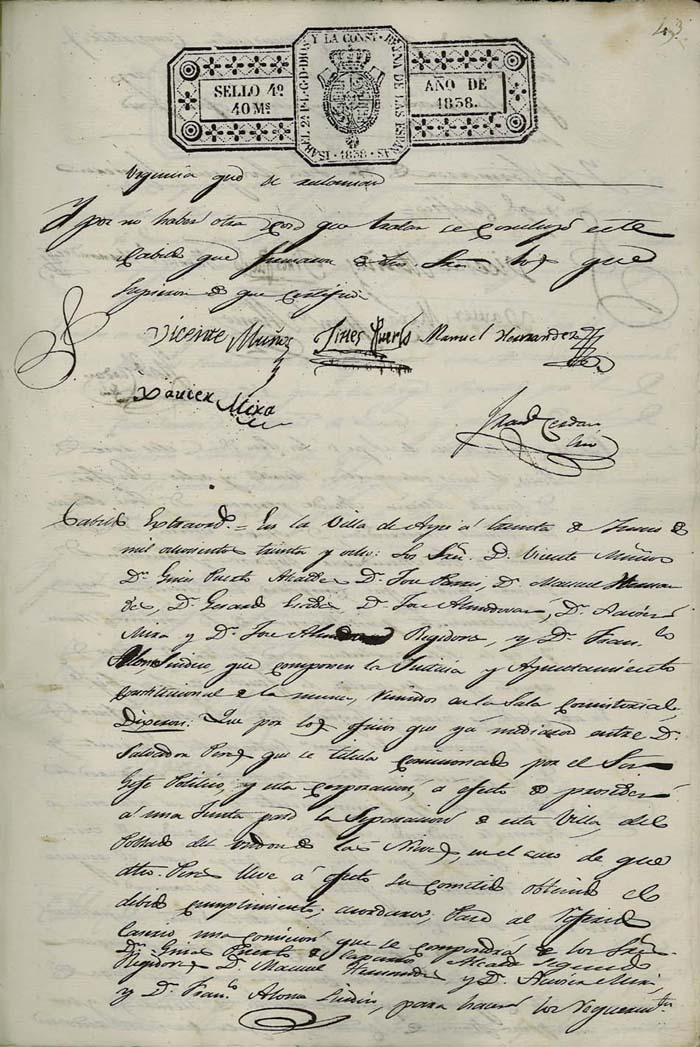 43
ISABEL 2ª P. L. G. D. DIOS Y LA CONST. REYNA DE LAS ESPAÑAS
1838
SELLO 4º
40 Ms
AÑO DE
1838.
Y por no haber otra cosa que tratar se concluyó este
Cabildo que firmaron dichos Sres los que
supieron de que certifico
Vicente Muñoz Gines Puerto Manuel Hernandez
Xavier Mira
Franco Cerdan
Cabildo Extraord. = En la Villa de Aspe á treinta de Junio de
mil ochocientos treinta y ocho: Los Sres. D. Vicente Muñoz
Dn. Gines Puerto Alcaldes Dn. Jose D. Manuel Hernan
dez, D. Gerardo D. Jose Almodovar, D. Xavier
Mira y Dn. Jose Regidores, y Dn. Franco
Alonso Sindico, que componen la Justicia y Ayuntamiento
Constitucional de la misma, reunidos en la Sala Consistorial,
Dixeron: Que por los oficios que ya mediaron entre D.
Salvador Perez que se titula Comisionado por el Sor
Gefe Politico, y esta corporacion, á efecto de proceder
á una Junta para la Separacion de esta Villa, del
Poblado del Hondon de las Nieves, en el caso de que
dho. Perez lleve á efecto su cometido obteniendo el
debido cumplimiento; acordaron, Pase al referido
Caserio una comision que se compondrá de los Sres.
Dn. Gines Puerto Alcalde Segundo
Regidores D. Manuel Hernandez y D. Xavier Mira,
y D. Franco Alonso Sindico, para hacer los requerimtos